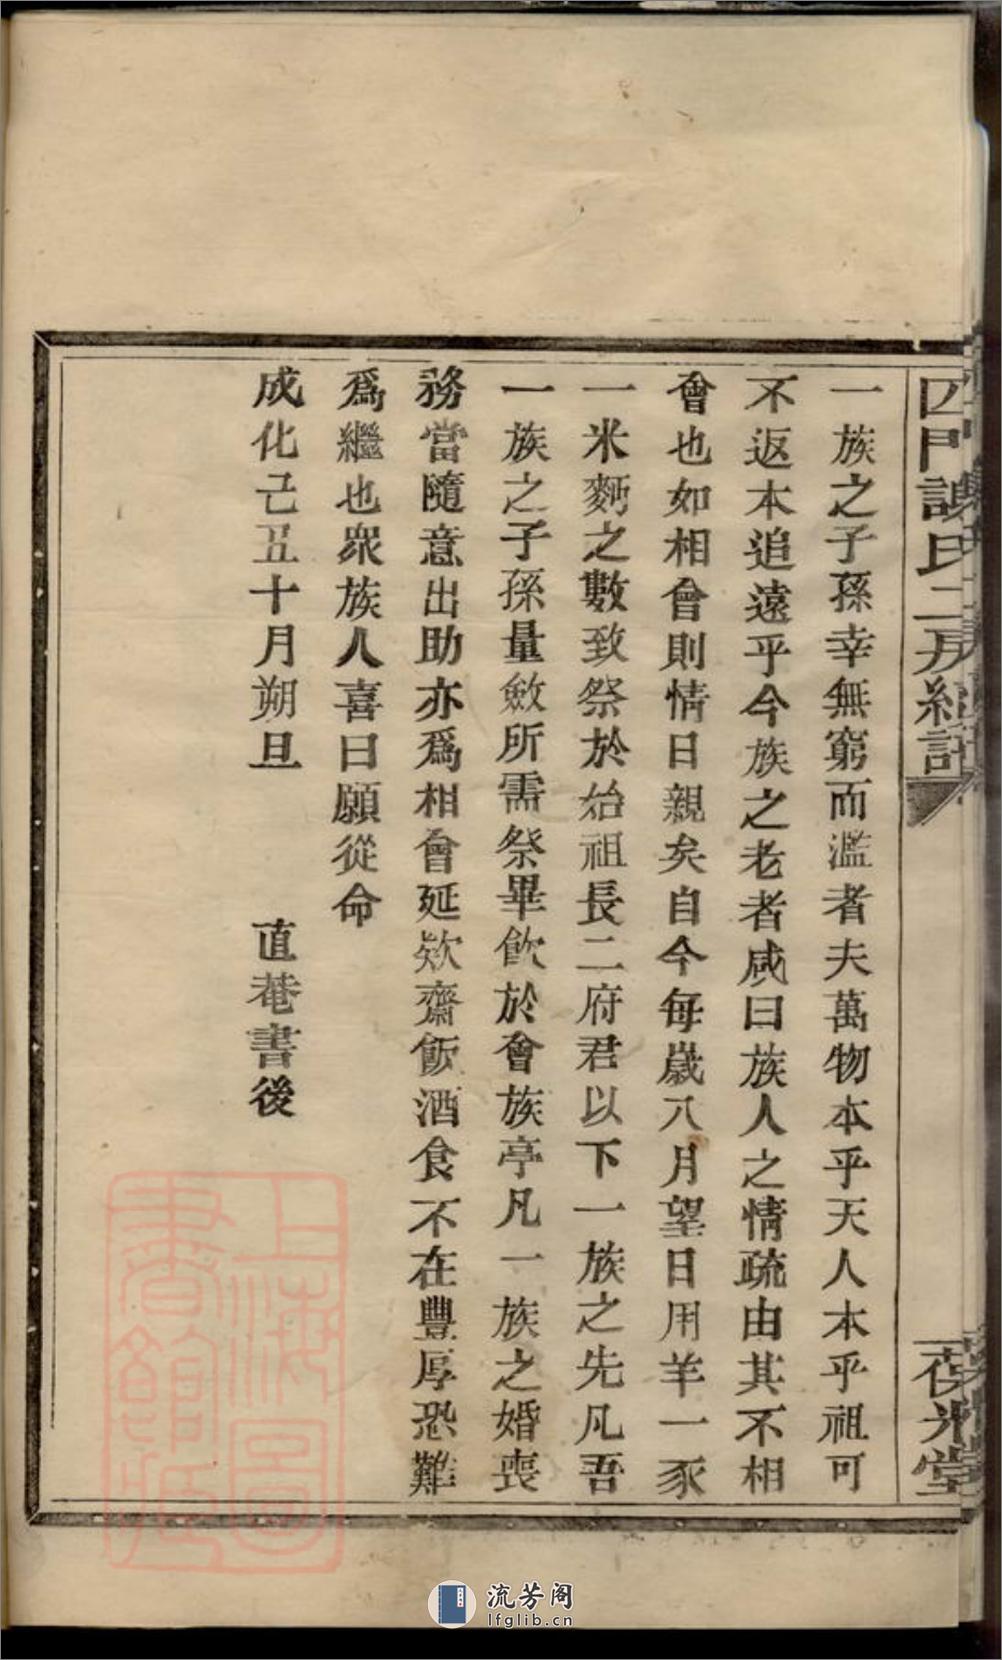 四門謝氏二房續譜
葆光堂
一族之子孫幸無窮而濫者夫萬物本乎天人本乎祖可
不返本追遠乎今族之老者咸曰族人之情疏由其不相
會也如相會則情日親矣自今每歲八月望日用羊一豕
一米麪之數致祭於始祖長二府君以下一族之先凡吾
一族之子孫量斂所需祭畢飲於會族亭凡一族之婚喪
務當隨意出助亦爲相會延欵齋飯酒食不在豐厚恐難
爲繼也衆族人喜曰願從命
成化己丑十月朔旦 直菴書後
上海圖書館藏
流芳阁
lfglib.cn